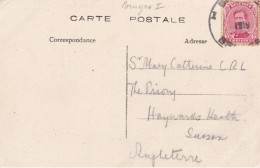 Bruges I
CARTE POSTALE
Correspondance
Adresse
St Mary Catherine C.R.L
The Priory
Haywards Heath
Sussex
Angleterre
1919